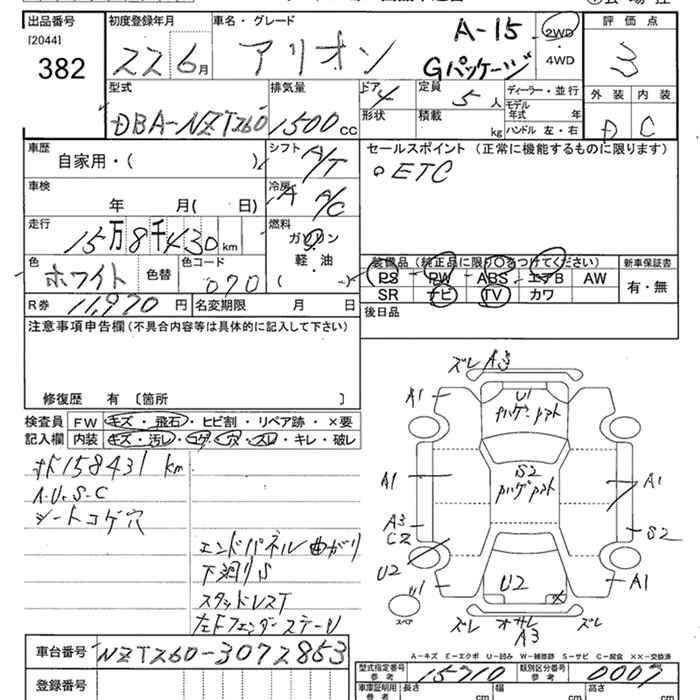 出品番号 初度登録年月 車名・グレード 評価点
[2044]
382
22 6月 アリオン A-15 Gパッケージ 2WD・4WD 3
型式 排気量 ドア 定員 ディーラー・並行 外装 内装
DBA-NZT260 1500cc 4 5人 モデル年式 年式
形状 積載 kg ハンドル 左・右 D C
車歴 自家用・( ) シフト A/T セールスポイント (正常に機能するものに限ります)
車検 年 月( 日) 冷房 A A/C ◦ETC
走行 15万8千430km 燃料 ガソリン 軽・油 ( )
色 ホワイト 色替 色コード 070
装備品(純正品に限り○をつけてください) 新車保証書
PS PW ABS エアB AW 有・無
SR ナビ TV カワ
R券 11,970円 名変期限 月 日 後日品
注意事項申告欄 (不具合内容等は具体的に記入して下さい)
修復歴 有 〔箇所 〕
検査員記入欄 FW キズ・飛石・ヒビ割・リペア跡・×要
内装 キズ・汚レ・コゲ・穴・スレ・キレ・破レ
158431 km
A・U・S・C
シートコゲ穴
エンドパネル曲がり
下廻りS
スタッドレスT
左Fフェンダーステー U
ズレ A3
A1 U1 ハゲ A1
A1 S2 ハゲ A1
A3 C2 S2
U2 U1 U2 A1
スペア ズレ オサレ A3 ズレ
A-キズ E-エクボ U-凹み W-補修跡 S-サビ C-腐食 ××-交換済
車台番号 NZT260-3072853
型式指定番号 参考 15710 類別区分番号 参考 0007
登録番号 車庫証明用 参考 長さ cm 幅 cm 高さ cm